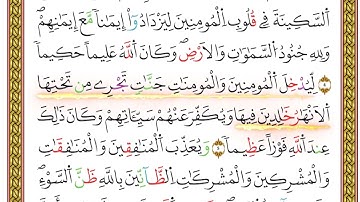 ٱلسَّكِينَةَ فِي قُلُوبِ ٱلْمُؤْمِنِينَ لِيَزْدَادُوٓا۟ إِيمَٰنًا مَّعَ إِيمَٰنِهِمْ
وَلِلَّهِ جُنُودُ ٱلسَّمَٰوَٰتِ وَٱلْأَرْضِ وَكَانَ ٱللَّهُ عَلِيمًا حَكِيمًا
٤ لِّيُدْخِلَ ٱلْمُؤْمِنِينَ وَٱلْمُؤْمِنَٰتِ جَنَّٰتٍ تَجْرِى مِن تَحْتِهَا
ٱلْأَنْهَٰرُ خَٰلِدِينَ فِيهَا وَيُكَفِّرَ عَنْهُمْ سَيِّـَٔاتِهِمْ وَكَانَ ذَٰلِكَ
عِندَ ٱللَّهِ فَوْزًا عَظِيمًا ٥ وَيُعَذِّبَ ٱلْمُنَٰفِقِينَ وَٱلْمُنَٰفِقَٰتِ
وَٱلْمُشْرِكِينَ وَٱلْمُشْرِكَٰتِ ٱلظَّآنِّينَ بِٱللَّهِ ظَنَّ ٱلسَّوْءِ